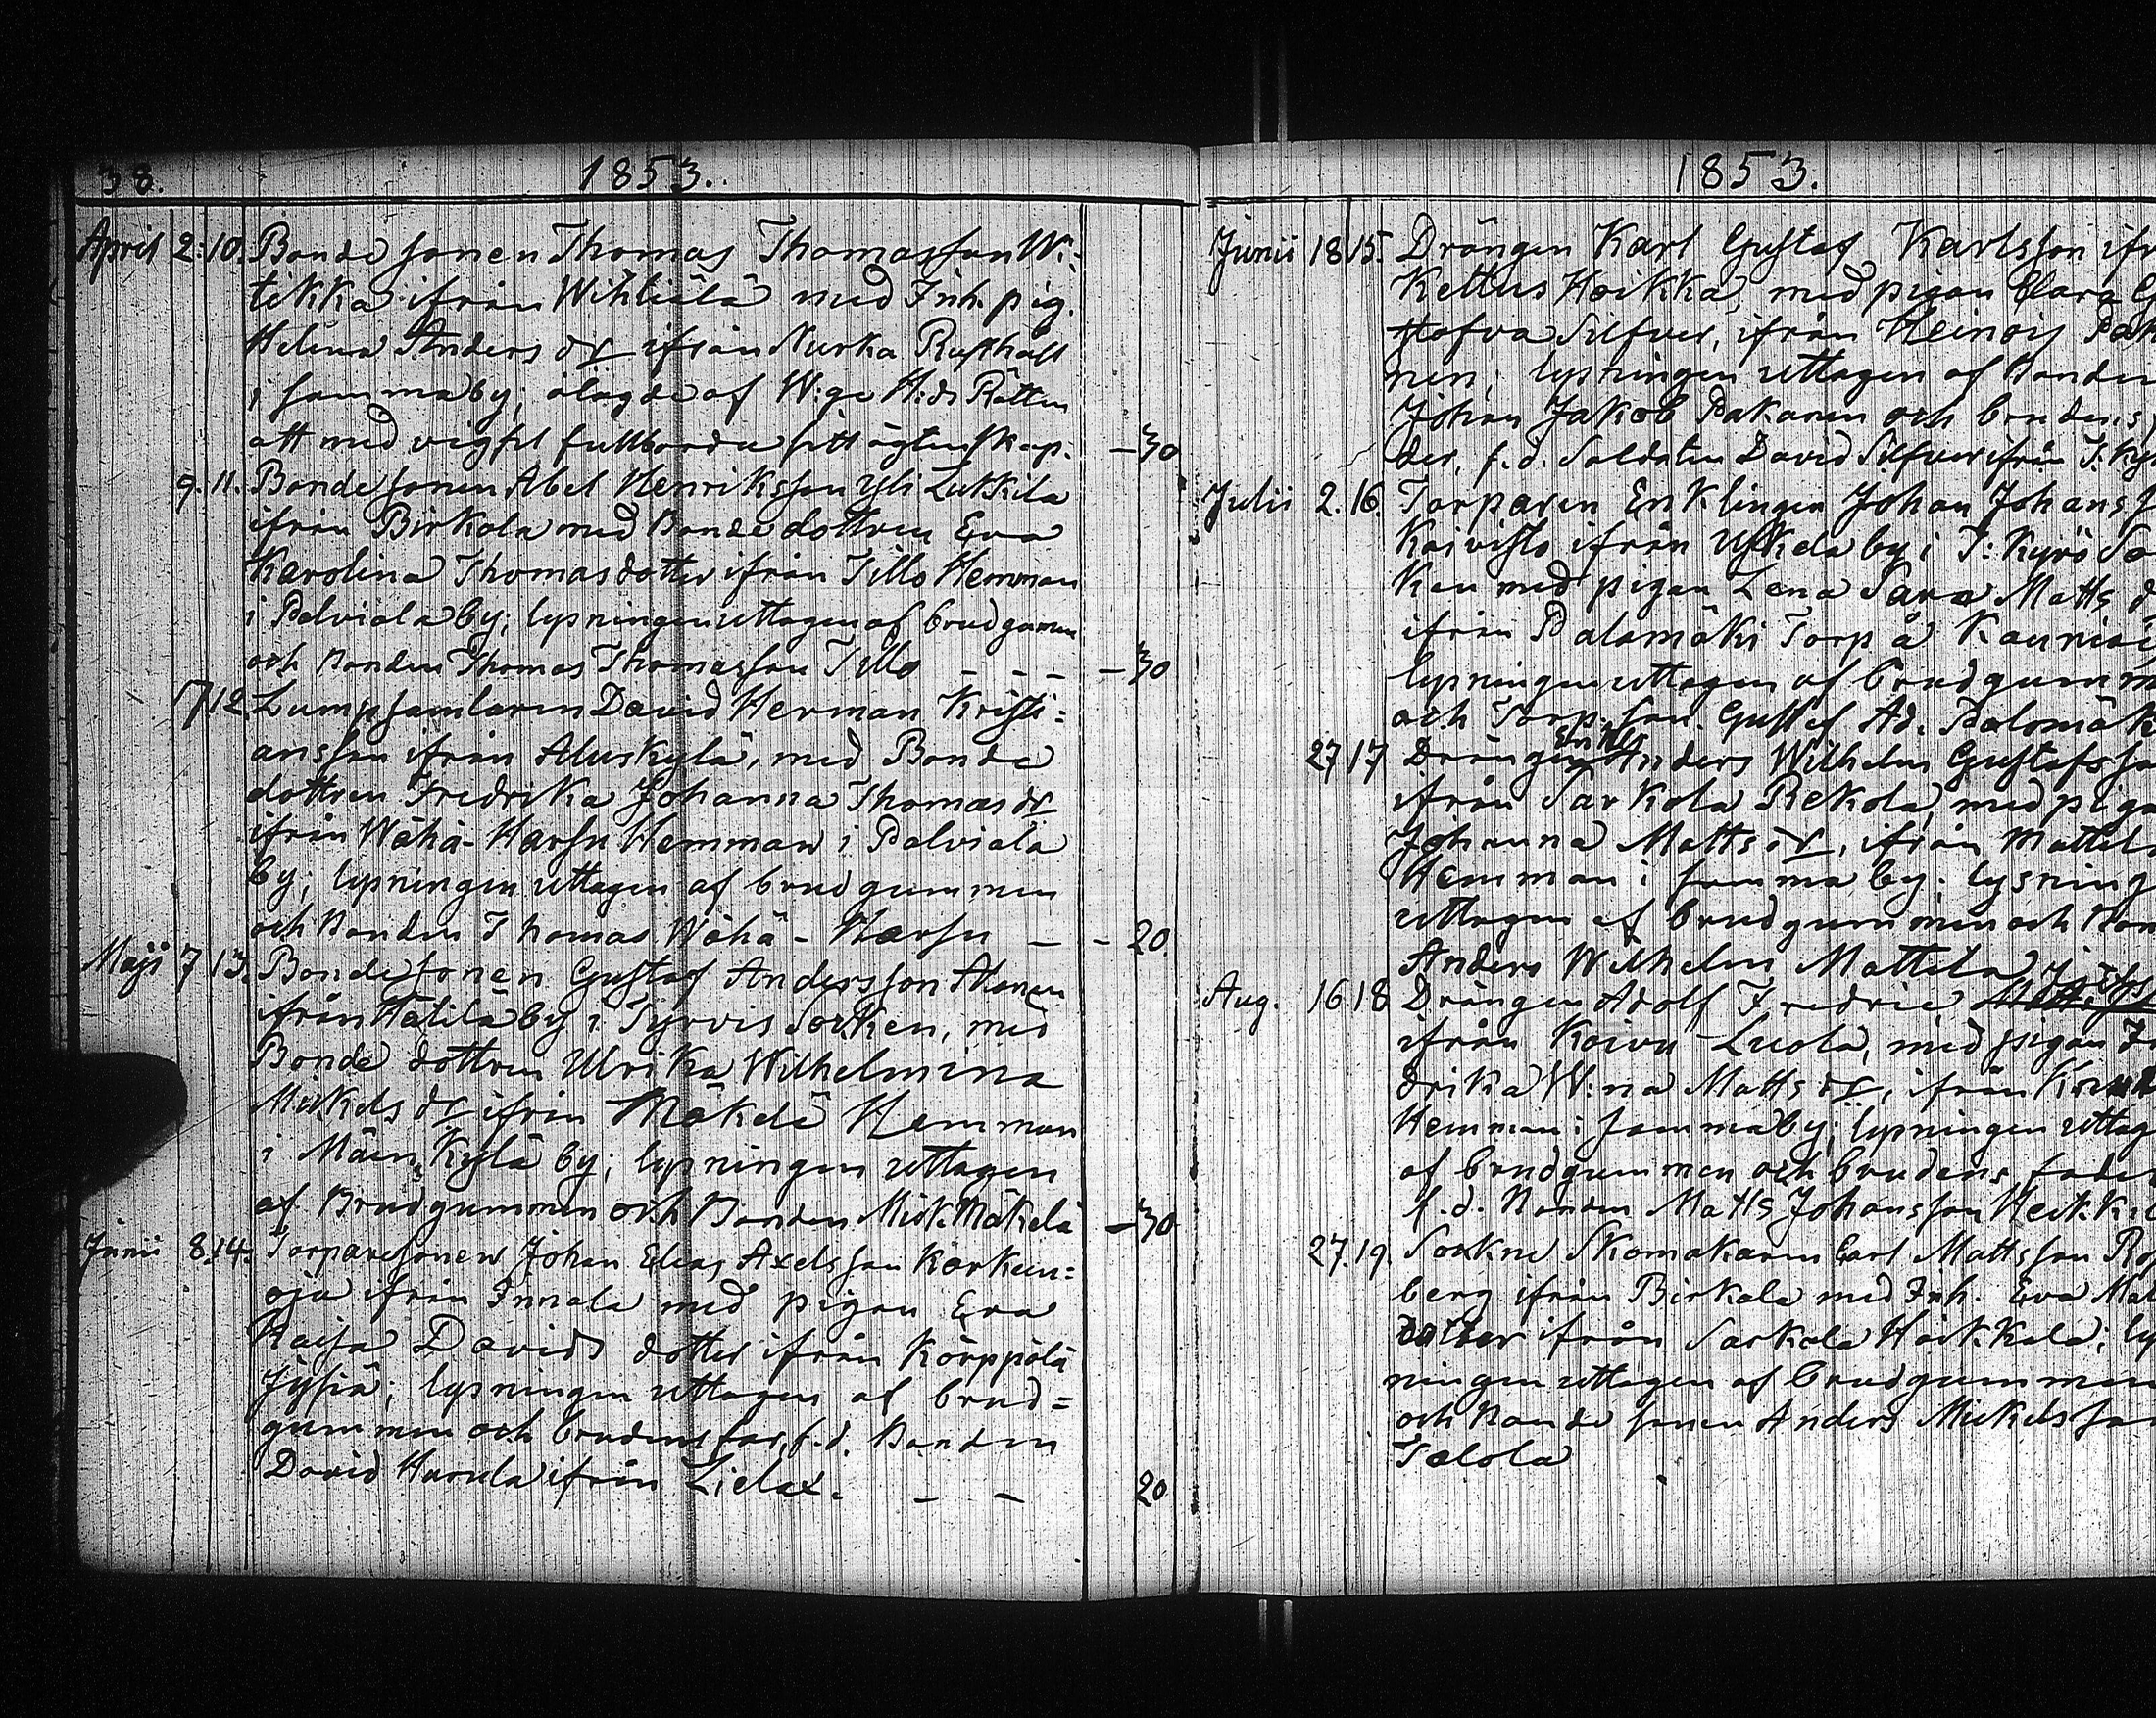 38.
1853.
April 2. 10. Bonde sonen Thomas Thomasson Wi-
tikka ifrån Wihliälä med Inh. pig.
Helena Anders dr ifrån Nurka Rusthåll
i samma by; ålagde af W:ge H:ds Rätten
att med vigsel fullborda sitt ägtenskap. – 30
9. 11. Bonde sonen Abel Henriksson Yli Lukkila
ifrån Birkala med Bonde dottren Eva
Karolina Thomas dotter ifrån Tillo Hemman
i Palviala by; lysningen uttagen af brudgumen
och Bonden Thomas Thomasson Tillo – – – – 30
17 12. Lumpsamlaren David Herman Kristi=
ansson ifrån Aluskylä, med Bonde
dottren Fredrika Johanna Thomas dr
ifrån Wähä-Harsu Hemman i Palviala
by; lysningen uttagen af brudgummen
och Bonden Thomas Wähä-Harsu – – 20
Maji 7 13. Bonde sonen Gustaf Andersson Ahonen
ifrån Hälilä by i Tyrvis Socken, med
Bonde dottren Ulrika Wilhelmina
Mickels dr ifrån Mäkelä Hemman
i Mäenkylä by; lysningen uttagen
af Brudgummen och Bonden Mick. Mäkelä – 30
Junii 8. 14. Torparesonen Johan Elias Axelsson Korkeen=
oja ifrån Innala med pigan Eva
Kaisa Davids dotter ifrån Körppölä
Jyssä; lysningen uttagen af brud=
gummen och brudens far, f.d. Bonden
David Harula ifrån Lielax. – – 20
1853.
Junii 18 15. Drängen Karl Gustaf Karlsson ifr
Kettus Hoikka, med pigan Clara G
stafva Silfver, ifrån Heinois Pak
nen; lysningen uttagen af Bonden
Johan Jakob Pakaren och brudens f
der, f.d. Soldaten David Silfver ifrån T. Kyr
Julii 2. 16. Torparen Enklingen Johan Johanss
Koivisto ifrån Uskela by i T: Kyrö So
ken med pigan Lena Sara Matts d
ifrån Palomäki Torp å Kaunis
lysningen uttagen af brudgumm
och Torp. son. Gustaf Ad. Palomäk
27 17 Drängen Enkl. Anders Wilhelm Gustafsso
ifrån Sarkola Rekola, med piga
Johanna Matts dr, ifrån Mattila
Hemman i samma by; lysning
uttagen af brudgummen och Bon
Anders Wilhelm Mattila
Aug. 16 18 Drängen Adolf Fredric
ifrån Koivu-Luola, med pigan Fr
drika W:na Matts dr, ifrån
Hemman i samma by; lysningen uttage
af brudgummen och brudens fader
f.d. Bonden Matts Johansson Heikkil
27. 19. Sockne Skomakaren Carl Mattsson Ro
berg ifrån Birkala med Inh. Eva Mat
dotter ifrån Sarkola Heikkala; ly
ningen uttagen af brudgummen
och Bonde sonen Anders Mickelsso
Talola